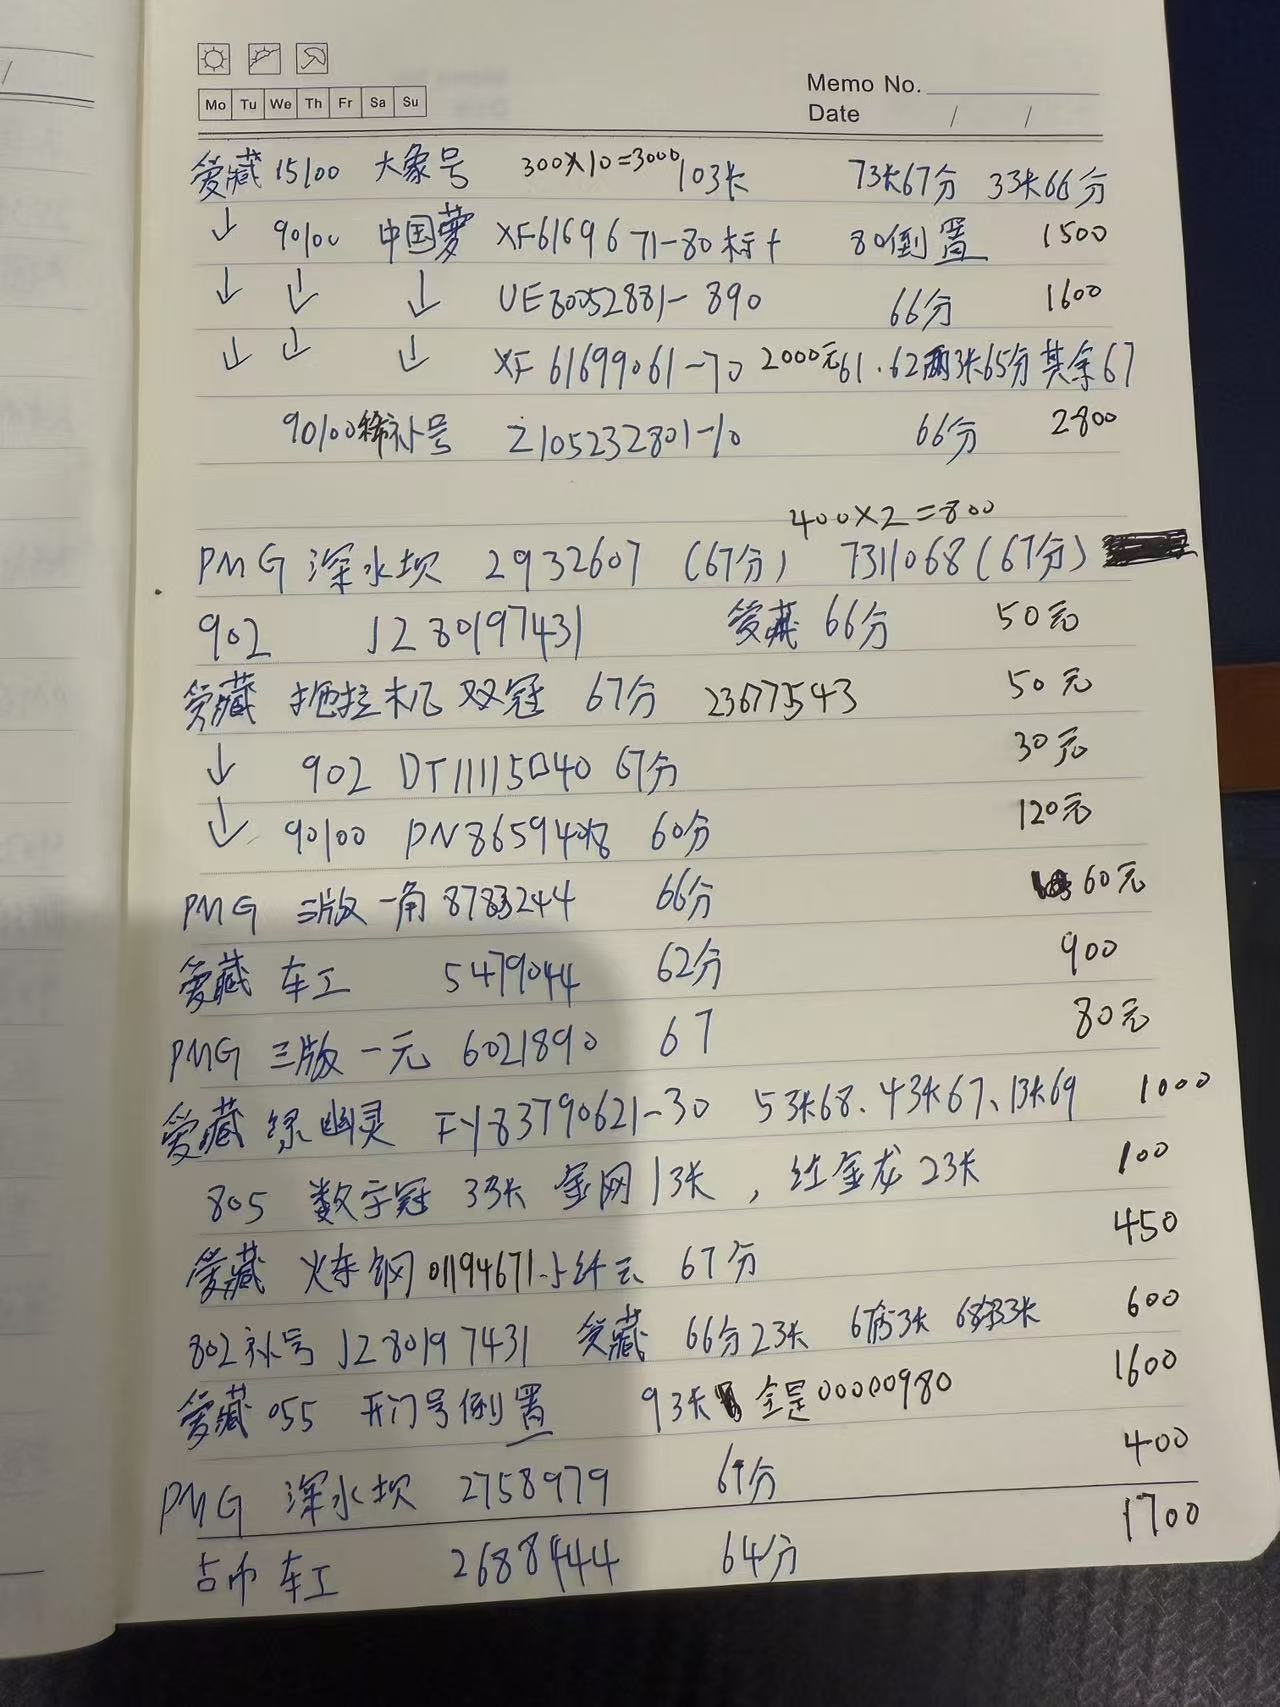 Mo Tu We Th Fr Sa Su
Memo No.
Date / /
爱藏 15100 大象号 300×10=3000 10张 7张67分 3张66分
↓ 90100 中国梦 XF6169671-80 标十 80倒置 1500
↓ ↓ ↓ UE80052881-890 66分 1600
↓ ↓ ↓ XF61699061-70 2000元 61.62两张65分 其余67
90100 稀补号 Z105232801-10 66分 2800
400×2=800
PMG 深水坝 2932607 (67分) 7311068(67分)
902 JZ80197431 爱藏 66分 50元
爱藏 拖拉机 双冠 67分 23677543 50元
↓ 902 DT11115040 67分 30元
↓ 90100 PN8659 60分 120元
PMG 三版一角 8783244 66分 60元
爱藏 车工 5479044 62分 900
PMG 三版一元 6021890 67 80元
爱藏 绿幽灵 FY83790621-30 5张68、4张67、1张69 1000
805 数字冠 3张 金网1张, 红金龙2张 100
爱藏 火车钢 01194671 67分 450
802补号 JZ80197431 爱藏 66分2张 67分3张 68分3张 600
爱藏 055 开门号倒置 9张 全是00000980 1600
PMG 深水坝 2758979 67分 400
古币 车工 2688444 64分 1700